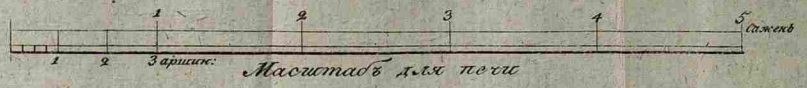 1 2 3 4 5 сажень
1 2 3 аршин:
Масштабъ для печи